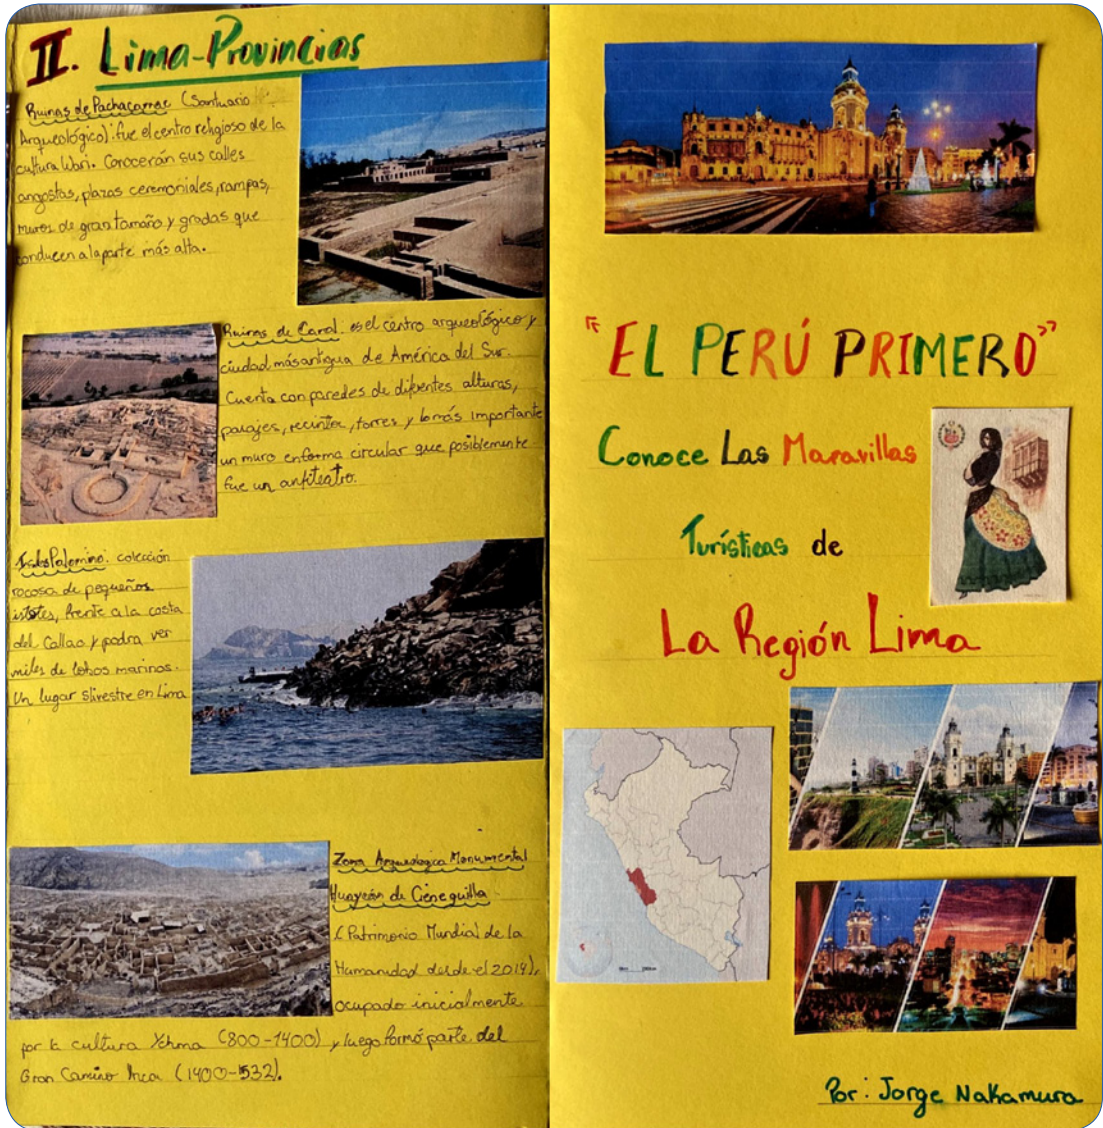 II. Lima-Provincias
Ruinas de Pachacamac (Santuario
Arqueológico): fue el centro religioso de la
cultura Wari. Conocerán sus calles
angostas, plazas ceremoniales, rampas,
muros de gran tamaño y gradas que
conducen a la parte más alta.
Ruinas de Caral: es el centro arqueológico y
ciudad más antigua de América del Sur.
Cuenta con paredes de diferentes alturas,
pasajes, recintos, torres y lo más importante
un muro en forma circular que posiblemente
fue un anfiteatro.
Islas Palomino: colección
rocosa de pequeños
islotes, frente a la costa
del Callao y podra ver
miles de lobos marinos.
Un lugar slivestre en Lima
Zona Arqueológica Monumental
Huaycán de Cieneguilla
(Patrimonio Mundial de la
Humanidad desde el 2014),
ocupado inicialmente
por la cultura Ychma (800-1400) y luego formó parte del
Gran Camino Inca (1400-1532).
"EL PERÚ PRIMERO"
Conoce Las Maravillas
Turísticas de
La Región Lima
Por: Jorge Nakamura